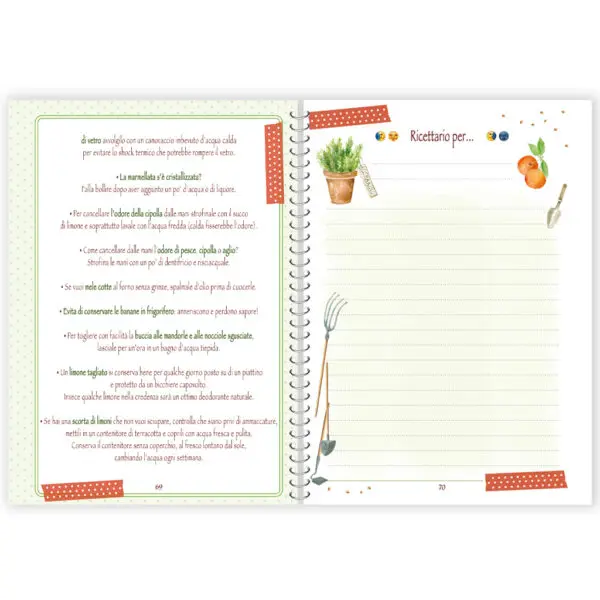 di vetro avvolgilo con un canovaccio imbevuto d'acqua calda
per evitare lo shock termico che potrebbe rompere il vetro.
• La marmellata s'è cristallizzata?
Falla bollire dopo aver aggiunto un po' d'acqua o di liquore.
• Per cancellare l'odore della cipolla dalle mani strofinale con il succo
di limone e soprattutto lavale con l'acqua fredda (calda fisserebbe l'odore).
• Come cancellare dalle mani l'odore di pesce, cipolla o aglio?
Strofina le mani con un po' di dentifricio e risciacquale.
• Se vuoi mele cotte al forno senza grinze, spalmale d'olio prima di cuocerle.
• Evita di conservare le banane in frigorifero: anneriscono e perdono sapore!
• Per togliere con facilità la buccia alle mandorle e alle nocciole sgusciate,
lasciale per un'ora in un bagno d'acqua tiepida.
• Un limone tagliato si conserva bene per qualche giorno posto su di un piattino
e protetto da un bicchiere capovolto.
Invece qualche limone nella credenza sarà un ottimo deodorante naturale.
• Se hai una scorta di limoni che non vuoi sciupare, controlla che siano privi di ammaccature,
mettili in un contenitore di terracotta e coprili con acqua fresca e pulita.
Conserva il contenitore senza coperchio, al fresco lontano dal sole,
cambiando l'acqua ogni settimana.
69
Ricettario per...
70